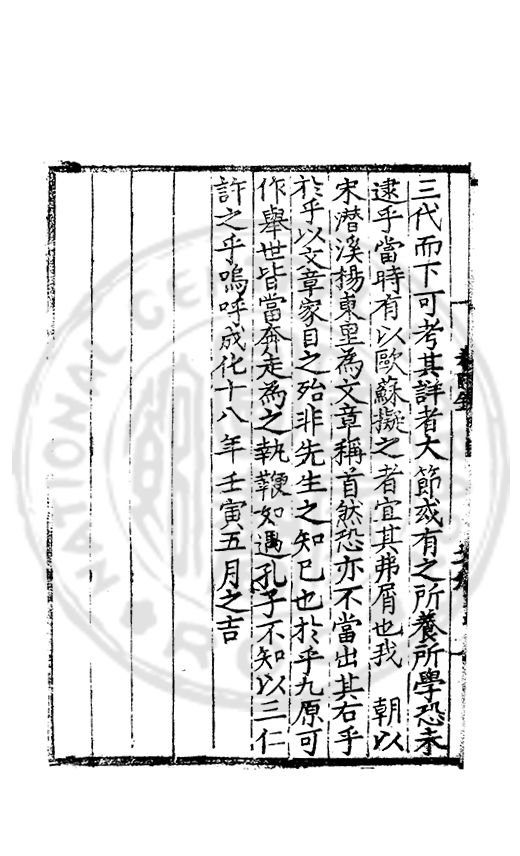 三代而下可考其詳者大節或有之所養所學恐未
逮乎當時有以歐蘇擬之者宜其弗屑也我　朝以
宋潛溪楊東里為文章稱首然恐亦不當出其右乎
於乎以文章家目之殆非先生之知已也於乎九原可
作舉世皆當奔走為之執鞭如遇孔子不知以三仁
許之乎嗚呼成化十八年壬寅五月之吉
NATIONAL CENTRAL